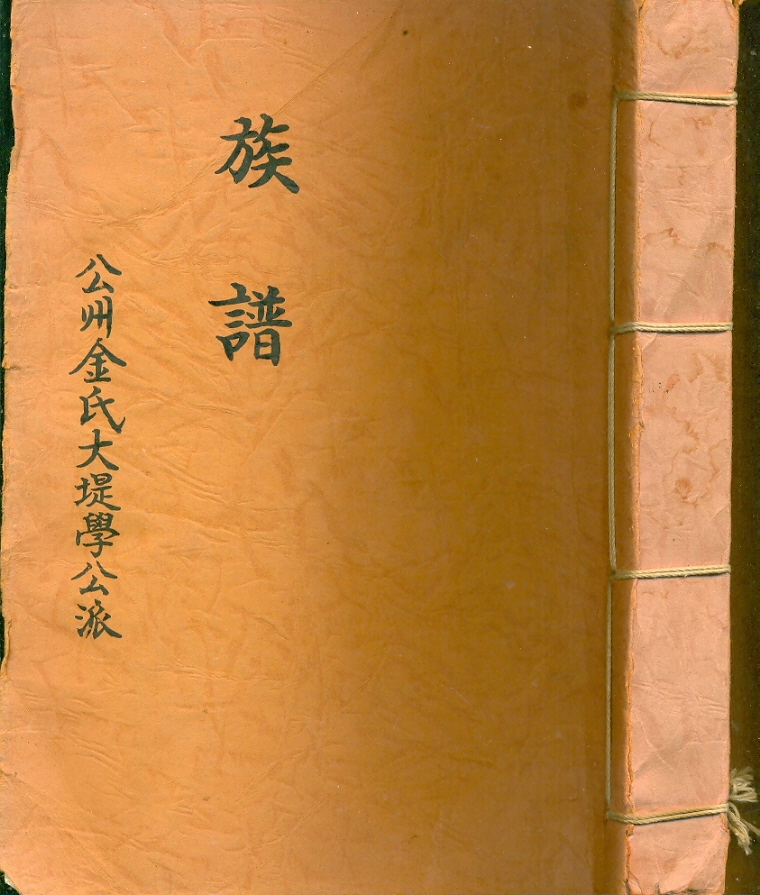 族譜
公州金氏大堤學公派